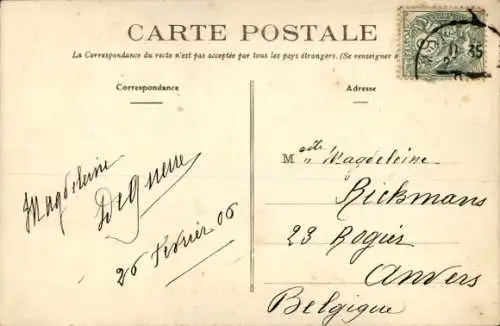 CARTE POSTALE
La Correspondance du recto n'est pas acceptée par tous les pays étrangers. (Se renseigner
Correspondance
Adresse
Magdeleine
26 Février 06
Melle Magdeleine
Rickmans
23 Rogier
Anvers
Belgique
35